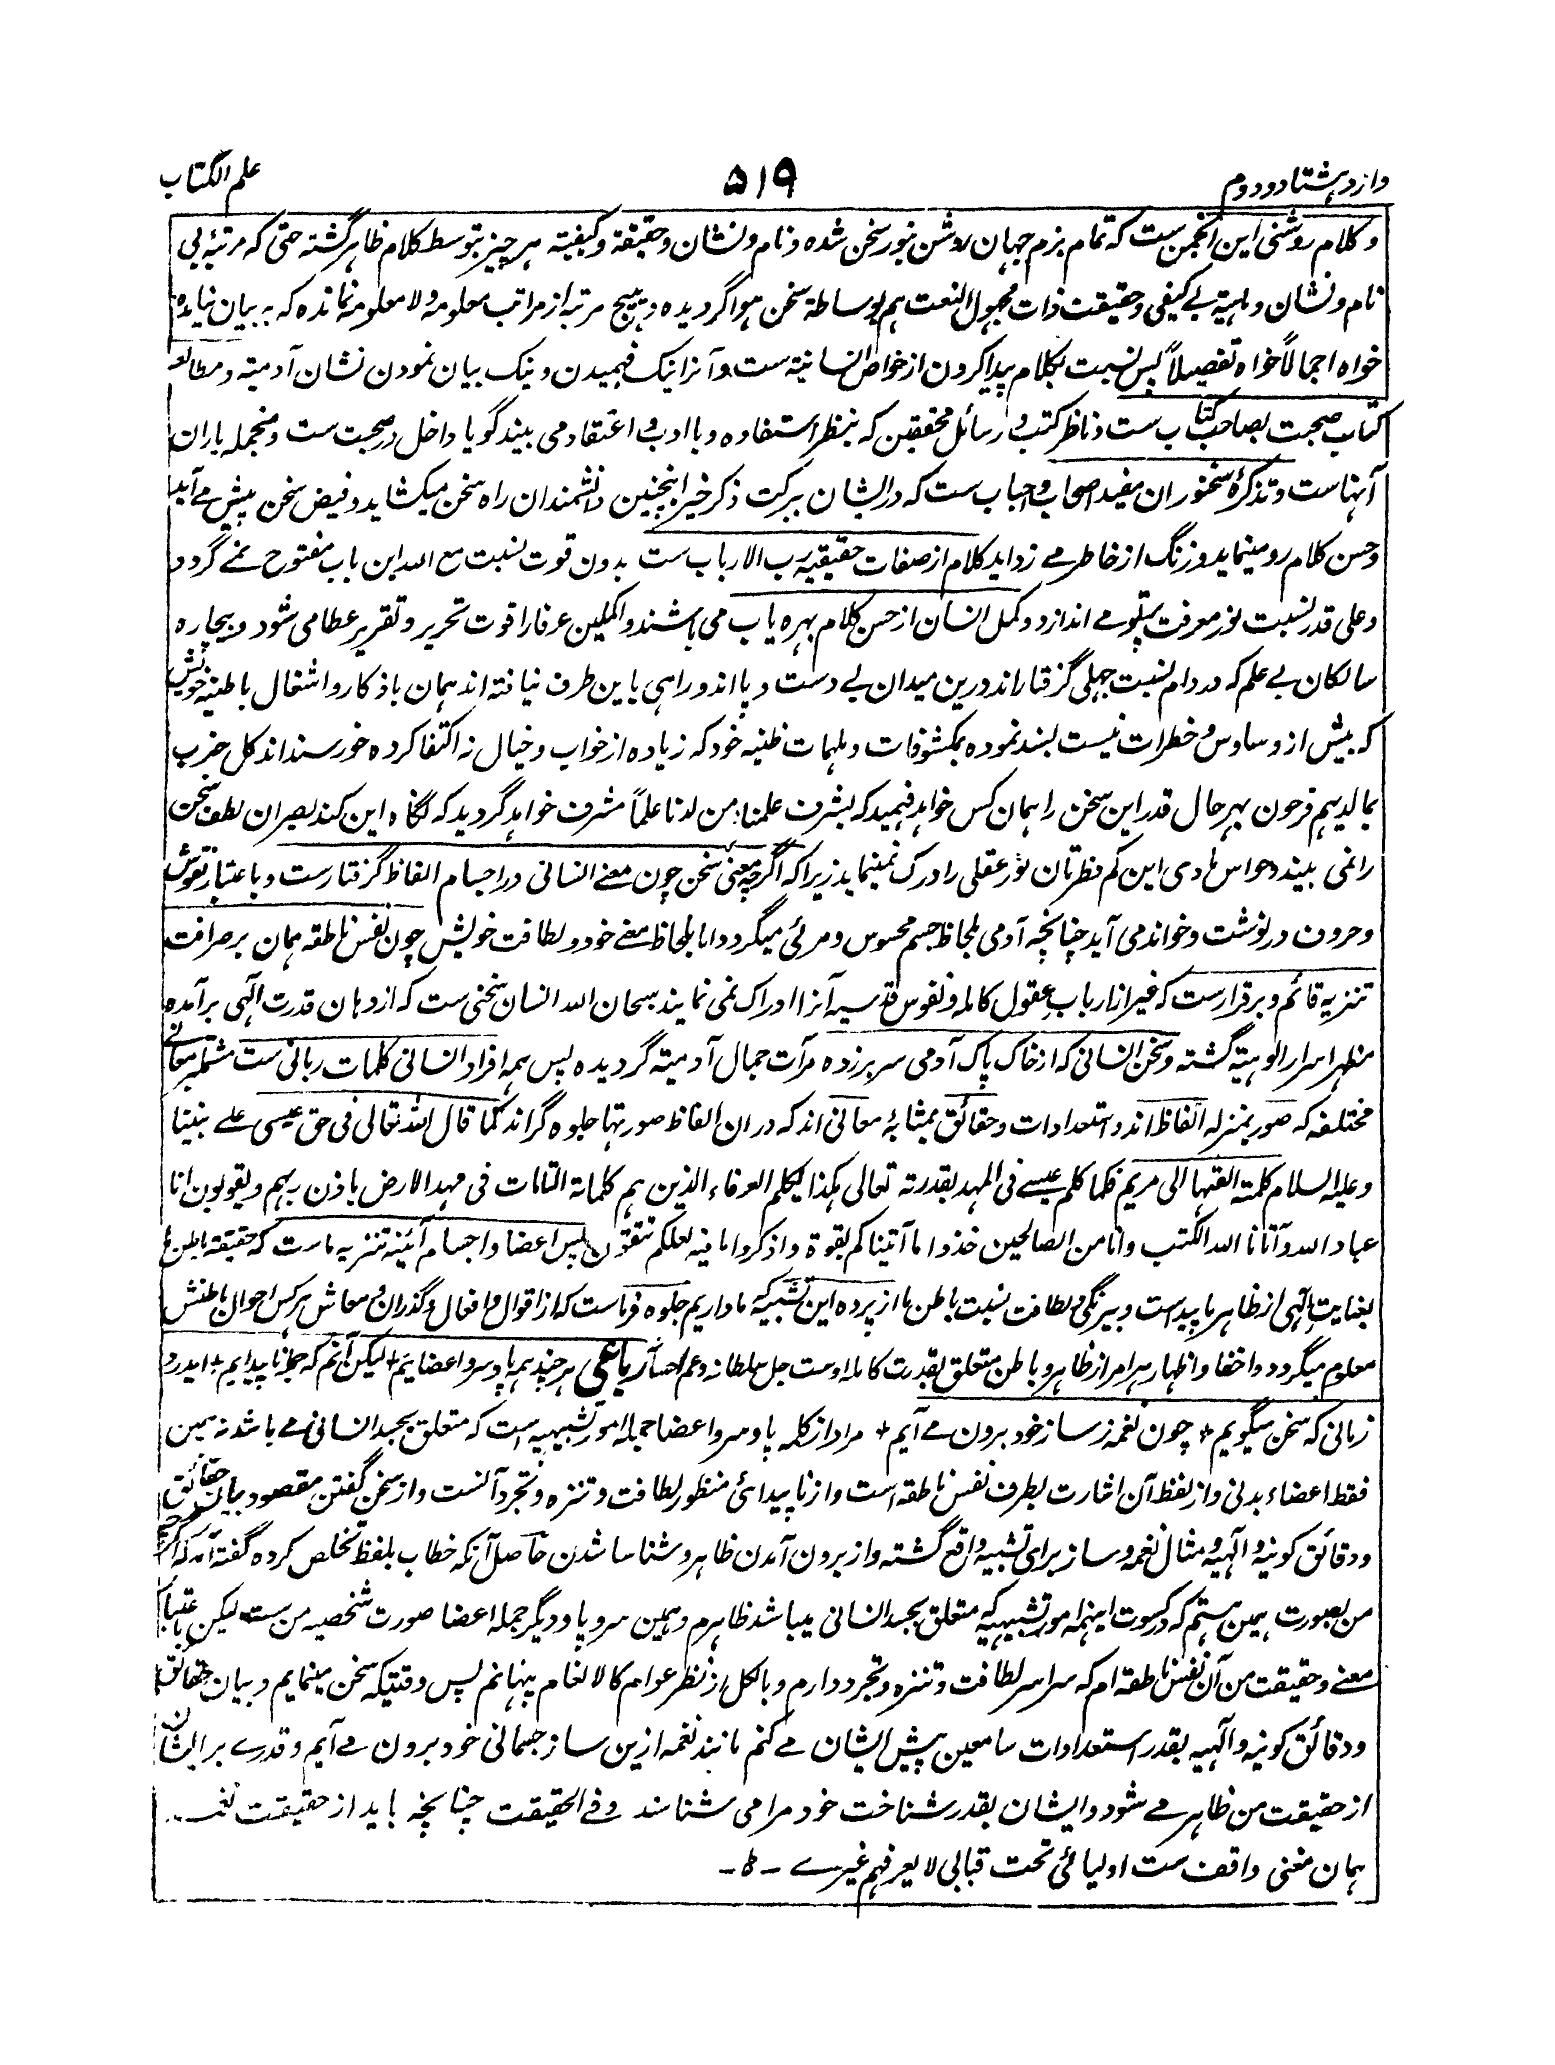 وارد هشتاد و دوم
۵۱۹
علم الکتاب
و کلام روشنی این انجمن ست که تمام بزم جهان روشن بنور سخن شده و نام و نشان و حقیقة و کیفیة هر چیز بتوسط کلام ظاهر گشته حتی که مرتبهٔ بی
نام و نشان و ماهیة بے کیفی و حقیقت ذات مجهول النعت هم بوساطة سخن هوا گردیده و هیچ مرتبه از مراتب معلومه و لا معلومه نمانده که به بیان نیامده
خواه اجمالاً خواه تفصیلاً پس نسبت بکلام پیدا کردن از خواص انسانیة ست و آنرا نیک فهمیدن و نیک بیان نمودن نشان آدمیة و مطالعه
کتاب صحبت بصاحب کتاب ست و ناظر کتب و رسائل محققین که بنظر استفاده و با ادب و اعتقاد می بیند گویا داخل در صحبت ست و منجمله یاران
آنهاست و تذکرهٔ سخنوران مفید اصحاب و احباب ست که در ایشان ببرکت ذکر خیر اینچنین دانشمندان راه سخن میکشاید و فیض سخن پیش مے آید
و حسن کلام رو مینماید و زنگ از خاطر مے زداید کلام از صفات حقیقیه رب الارباب ست بدون قوت نسبت مع الله این باب مفتوح نمے گردد
و علی قدر نسبت نور معرفت پرتو مے اندازد و کمل انسان از حسن کلام بهره یاب می باشند و اکملین عرفا را قوت تحریر و تقریر عطا می شود و بیچاره
سالکان بے علم که در دام نسبت جهلی گرفتار اند درین میدان بے دست و پا اند و راهی باین طرف نیافته اند همان باذکار و اشغال باطنیه خویش
که بیش از وساوس و خطرات نیست بسند نموده بمکشوفات و ملهمات ظنیه خود که زیاده از خواب و خیال نه اکتفا کرده خورسند اند کل حزب
بما لدیهم فرحون بهر حال قدر این سخن را همان کس خواهد فهمید که بشرف علمناه من لدنا علماً مشرف خواهد گردید که نگاه این کند بصران لطف سخن
را نمی بیند و حواس مادی این کم نظرتان نور عقلی را درک نمینماید زیرا که اگرچه معنی سخن چون معنے انسانی در اجسام الفاظ گرفتار ست و باعتبار نقوش
و حروف در نوشت و خواند می آید چنانچه آدمی بلحاظ جسم محسوس و مرئی میگردد اما بلحاظ معنے خود و لطافت خویش چون نفس ناطقه همان بر صرافت
تنزیه قائم و برقرار ست که غیر از ارباب عقول کامله و نفوس قدسیه آنرا ادراک نمی نمایند سبحان الله انسان سخنی ست که از دهان قدرت الٓهی برآمده
مظهر اسرار الوهیة گشته و سخن انسانی که از خاک پاک آدمی سر برزده مرآت جمال آدمیة گردیده پس همه افراد انسانی کلمات ربانی ست مشتمل بر معانے
مختلفه که صور بمنزله الفاظ اند و استعدادات و حقائق بمثابهٔ معانی اند که در ان الفاظ صورتها جلوه گر اند کما قال الله تعالی فی حق عیسی علے نبینا
و علیه السلام کلمته القٰها الی مریم فلما کلم عیسے فی المهد بقدرته تعالی هکذا یکلم العرفاء الذین هم کلمات التامات فی مهد الارض باذن ربهم و یقولون انا
عباد الله و آتانا الله الکتب و انا من الصالحین خذوا ما آتیناکم بقوة و اذکروا ما فیه لعلکم تتقون پس اعضا و اجسام آئینه تنزیه ماست که حقیقة باطن ما
بغنایت الٓهی از ظاهر ما پیداست و بیرنگی و لطافت نسبت باطن ما از پرده این تشبیه که ما داریم جلوه فرماست که از اقوال و افعال و گذران و معاش هر کس احوال باطنش
معلوم میگردد و اخفا و اظهار هر امر از ظاهر و باطن متعلق بقدرت کامله اوست جل سلطانه و عم احسانه رباعی هر چند همه پا و سر و اعضایم + لیکن آنم که جمله ناپیدایم + ای درد
زمانی که سخن میگویم + چون نغمه ز ساز خود برون مے آیم + مراد از کلمه پا و سر و اعضا جمله امور تشبیهیه است که متعلق بجسد انسانی مے باشد نه همین
فقط اعضاء بدنی و از لفظ آن اشارت بطرف نفس ناطقه است و از ناپیدائی منظور لطافت و تنزه و تجرد آنست و از سخن گفتن مقصود بیان حقائق
و دقائق کونیه و الٓهیه و مثال نغمه و ساز برای تشبیه واقع گشته و از برون آمدن ظاهر و شناسا شدن حاصل آنکه خطاب بلفظ تخلص کرده گفته آمد که اگرچه
من بصورت همین هستم که در کسوت اینهمه امور تشبیهیه که متعلق بجسد انسانی میباشد ظاهرم و همین سر و پا و دیگر جمله اعضا صورت شخصیه من ست لیکن باعتبار
معنے و حقیقت من آن نفس ناطقه ام که سراسر لطافت و تنزه و تجرد دارم و بالکل از نظر عوام کالانعام پنهانم پس وقتیکه سخن مینمایم و بیان حقائق
و دقائق کونیه و الٓهیه بقدر استعدادات سامعین پیش ایشان مے کنم مانند نغمه ازین ساز جسمانی خود برون مے آیم و قدرے بر ایشان
از حقیقت من ظاهر مے شود و ایشان بقدر شناخت خود مرا می شناسند و فے الحقیقت چنانچه باید از حقیقت نغمه
همان مغنی واقف ست اولیائی تحت قبائی لا یعرفهم غیرے - ط -